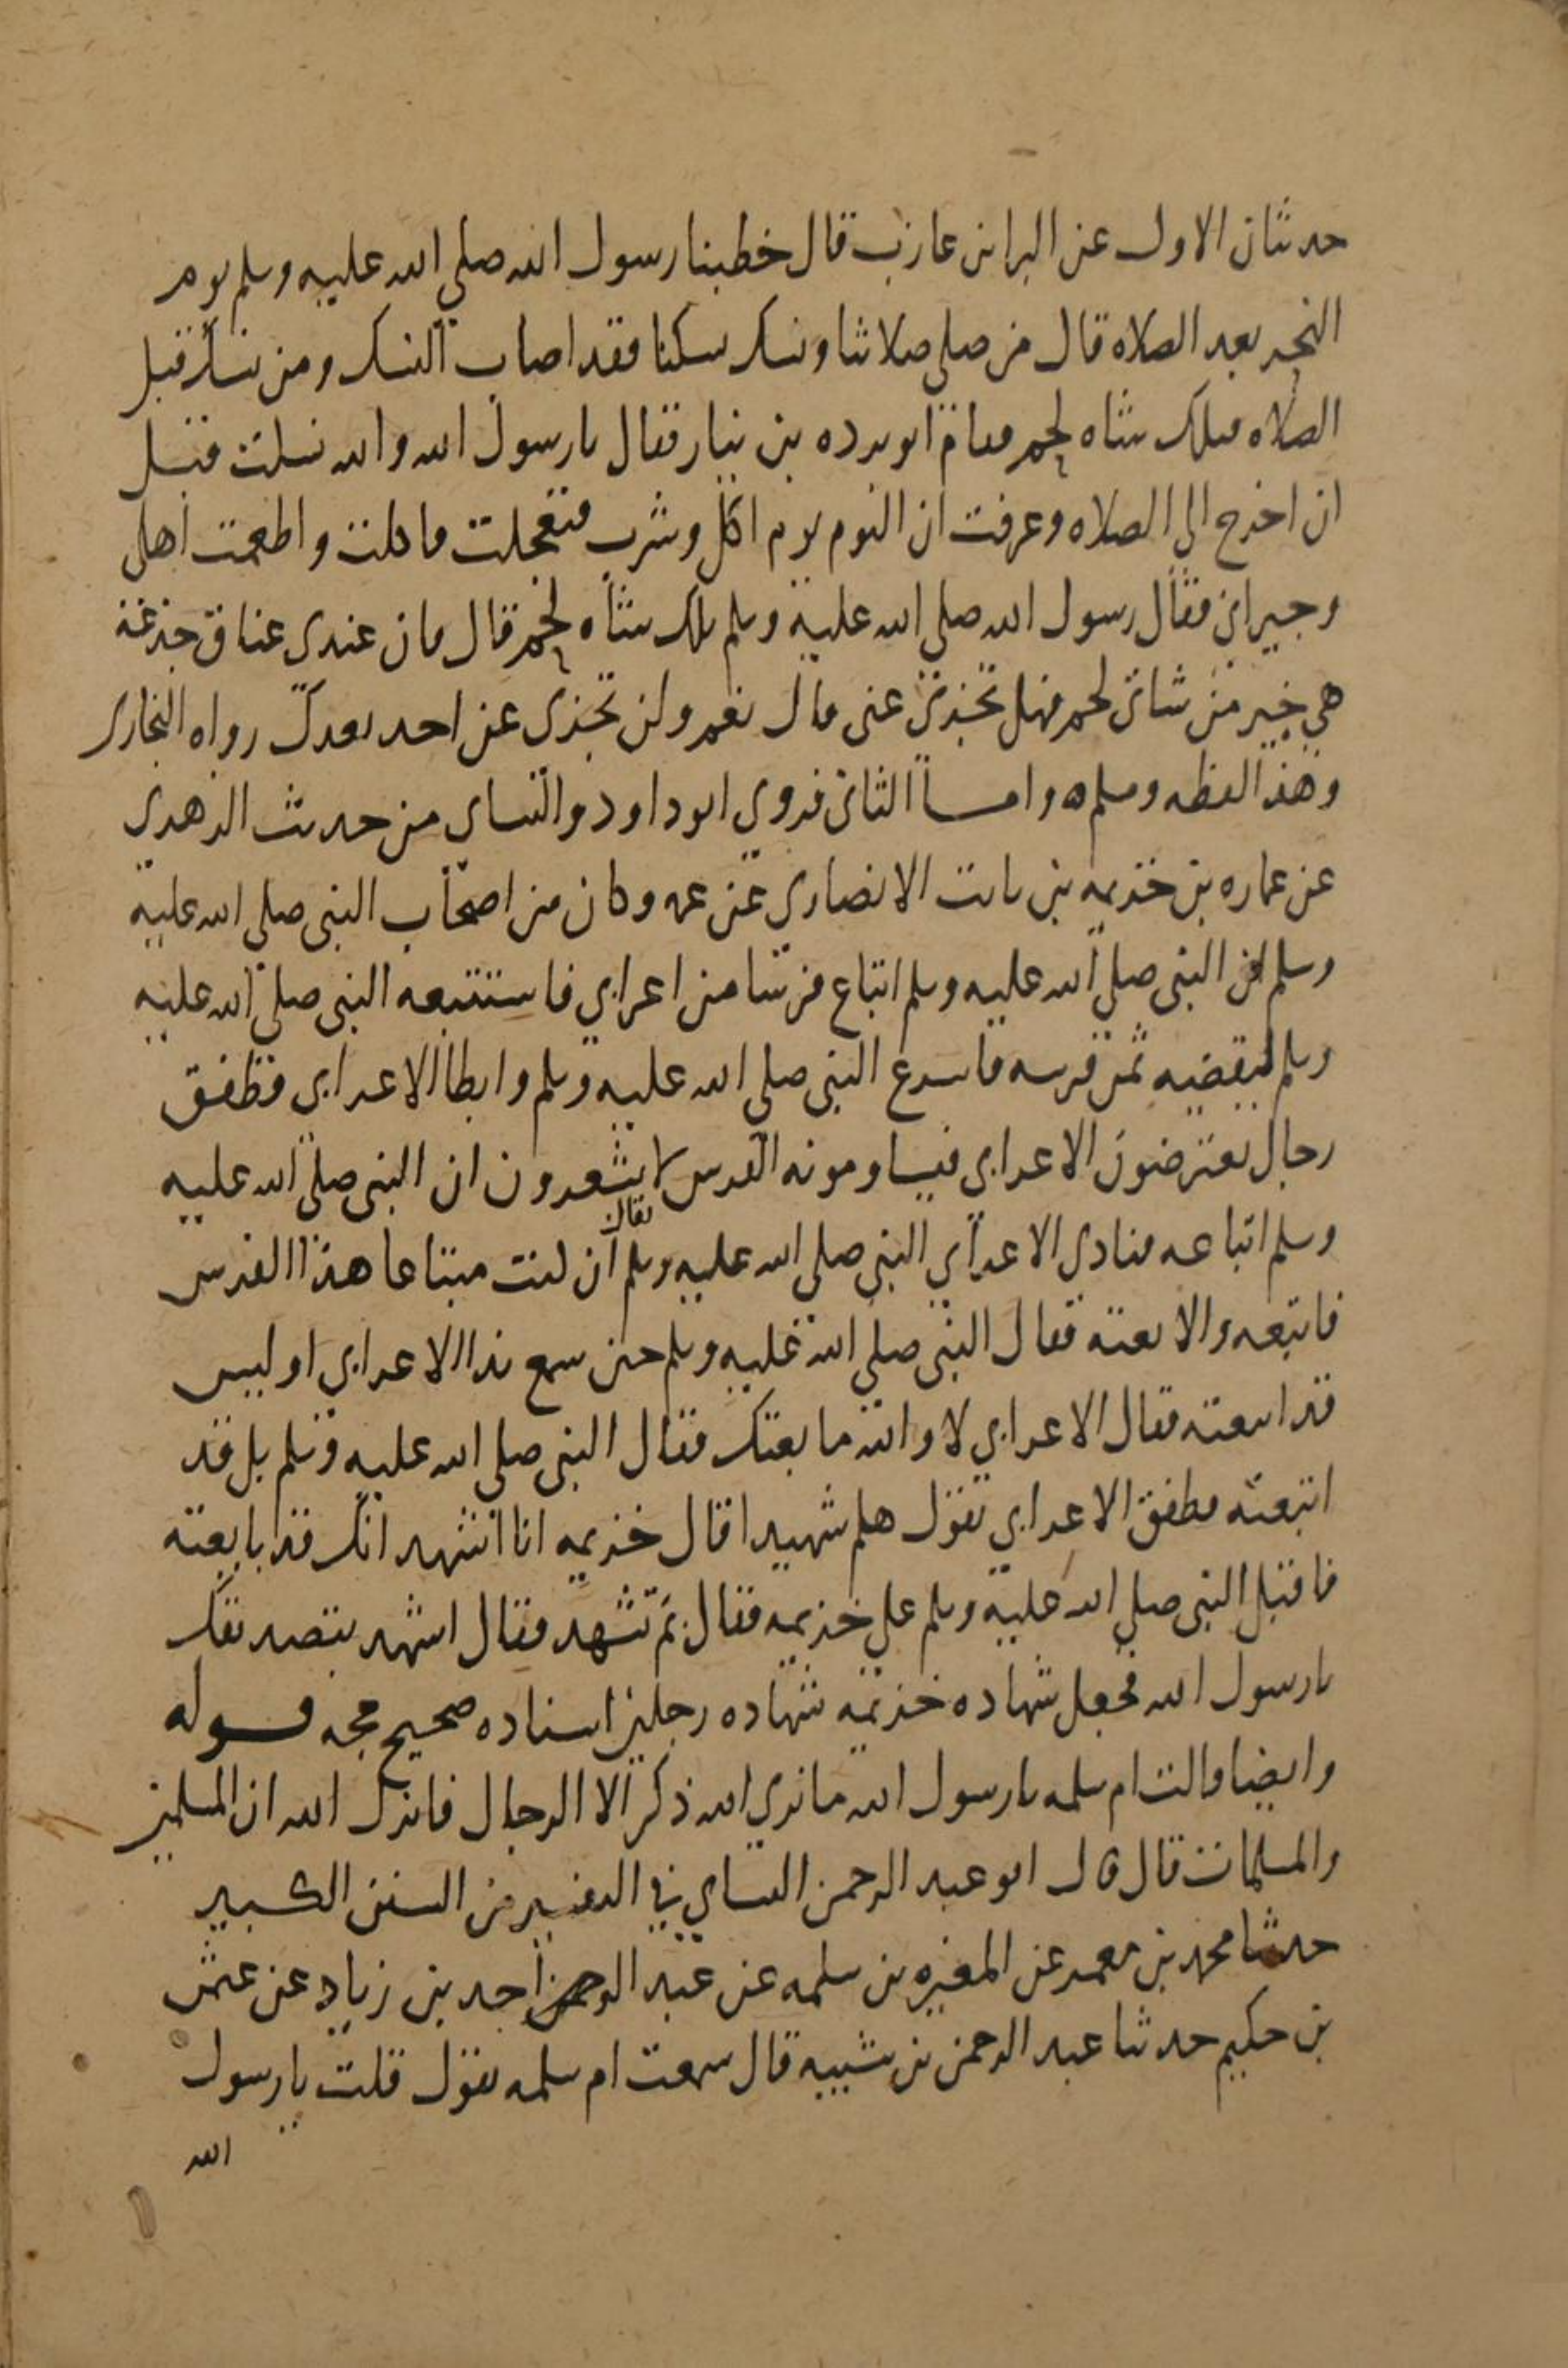 حديثان الاول عن البرا بن عازب قال خطبنا رسول الله صلى الله عليه وسلم يوم
النحر بعد الصلاه قال من صلى صلاتنا ونسك نسكنا فقد اصاب النسك ومن نسك قبل
الصلاه فتلك شاه لحم فقام ابو برده بن نيار فقال يا رسول الله والله نسكت قبل
ان اخرج الى الصلاه وعرفت ان اليوم يوم اكل وشرب فتعجلت فاكلت واطعمت اهلى
وجيرانى فقال رسول الله صلى الله عليه وسلم تلك شاه لحم قال فان عندى عناق جذعة
هي خير من شاتى لحم فهل تجزى عنى قال نعم ولن تجزى عن احد بعدك رواه البخارى
وهذا لفظه ومسلم ه واما الثانى فروى ابو داود والنساى من حديث الزهرى
عن عماره بن خزيمه بن ثابت الانصاري عن عمه وكان من اصحاب النبى صلى الله عليه
وسلم ان النبى صلى الله عليه وسلم ابتاع فرسا من اعرابي فاستتبعه النبى صلى الله عليه
وسلم ليقضيه ثمن فرسه فاسرع النبى صلى الله عليه وسلم وابطا الاعرابى فطفق
رجال يعترضون الاعرابي فيساومونه الفرس لا يشعرون ان النبى صلى الله عليه
وسلم ابتاعه فنادى الاعرابي النبى صلى الله عليه وسلم فقال ان كنت مبتاعا هذا الفرس
فابتعه والا بعته فقال النبى صلى الله عليه وسلم حين سمع ندا الاعرابي او ليس
قد ابتعته فقال الاعرابي لا والله ما بعتك فقال النبى صلى الله عليه وسلم بل قد
ابتعته فطفق الاعرابي يقول هلم شهيدا قال خزيمه انا اشهد انك قد بايعته
فاقبل النبى صلى الله عليه وسلم على خزيمه فقال بم تشهد فقال اشهد بتصديقك
يا رسول الله فجعل شهاده خزيمه شهاده رجلين اسناده صحيح حجه قوله
وايضا قالت ام سلمه يا رسول الله ما نرى الله ذكر الا الرجال فانزل الله ان المسلمين
والمسلمات قال قال ابو عبد الرحمن النساي في التفسير من السنن الكبير
حدثنا محمد بن معمر عن المغيره بن سلمه عن عبد الواحد بن زياد عن عثمن
بن حكيم حدثنا عبد الرحمن بن شيبه قال سمعت ام سلمه تقول قلت يا رسول
الله